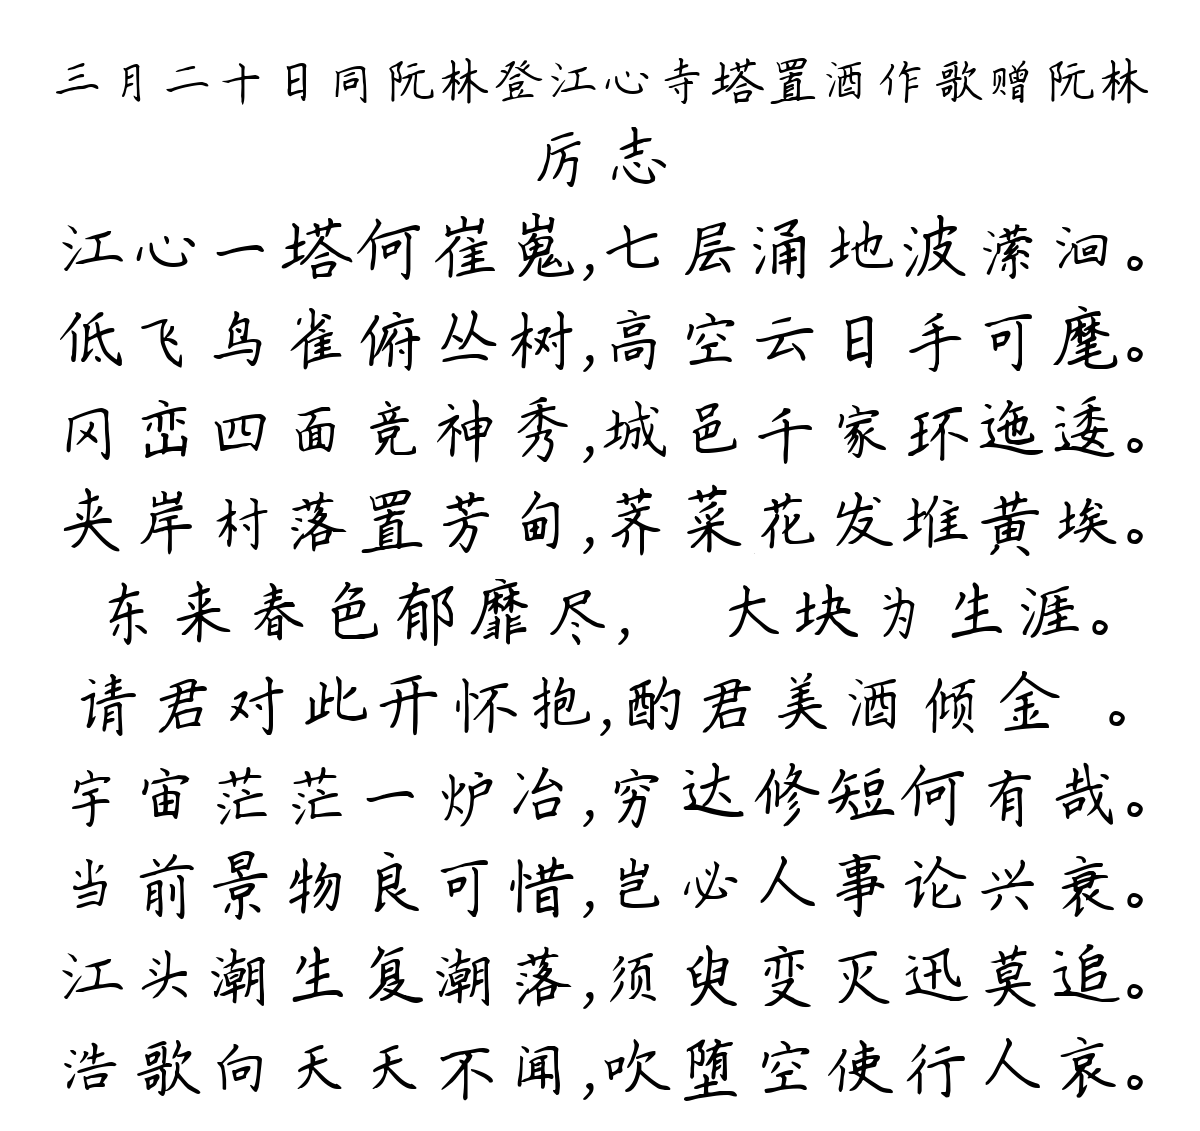 三月二十日同阮林登江心寺塔置酒作歌赠阮林
厉志
江心一塔何崔嵬,七层涌地波潆洄。
低飞鸟雀俯丛树,高空云日手可麾。
冈峦四面竞神秀,城邑千家环迤逶。
夹岸村落置芳甸,荠菜花发堆黄埃。
东来春色郁靡尽, 大块为生涯。
请君对此开怀抱,酌君美酒倾金 。
宇宙茫茫一炉冶,穷达修短何有哉。
当前景物良可惜,岂必人事论兴衰。
江头潮生复潮落,须臾变灭迅莫追。
浩歌向天天不闻,吹堕空使行人哀。